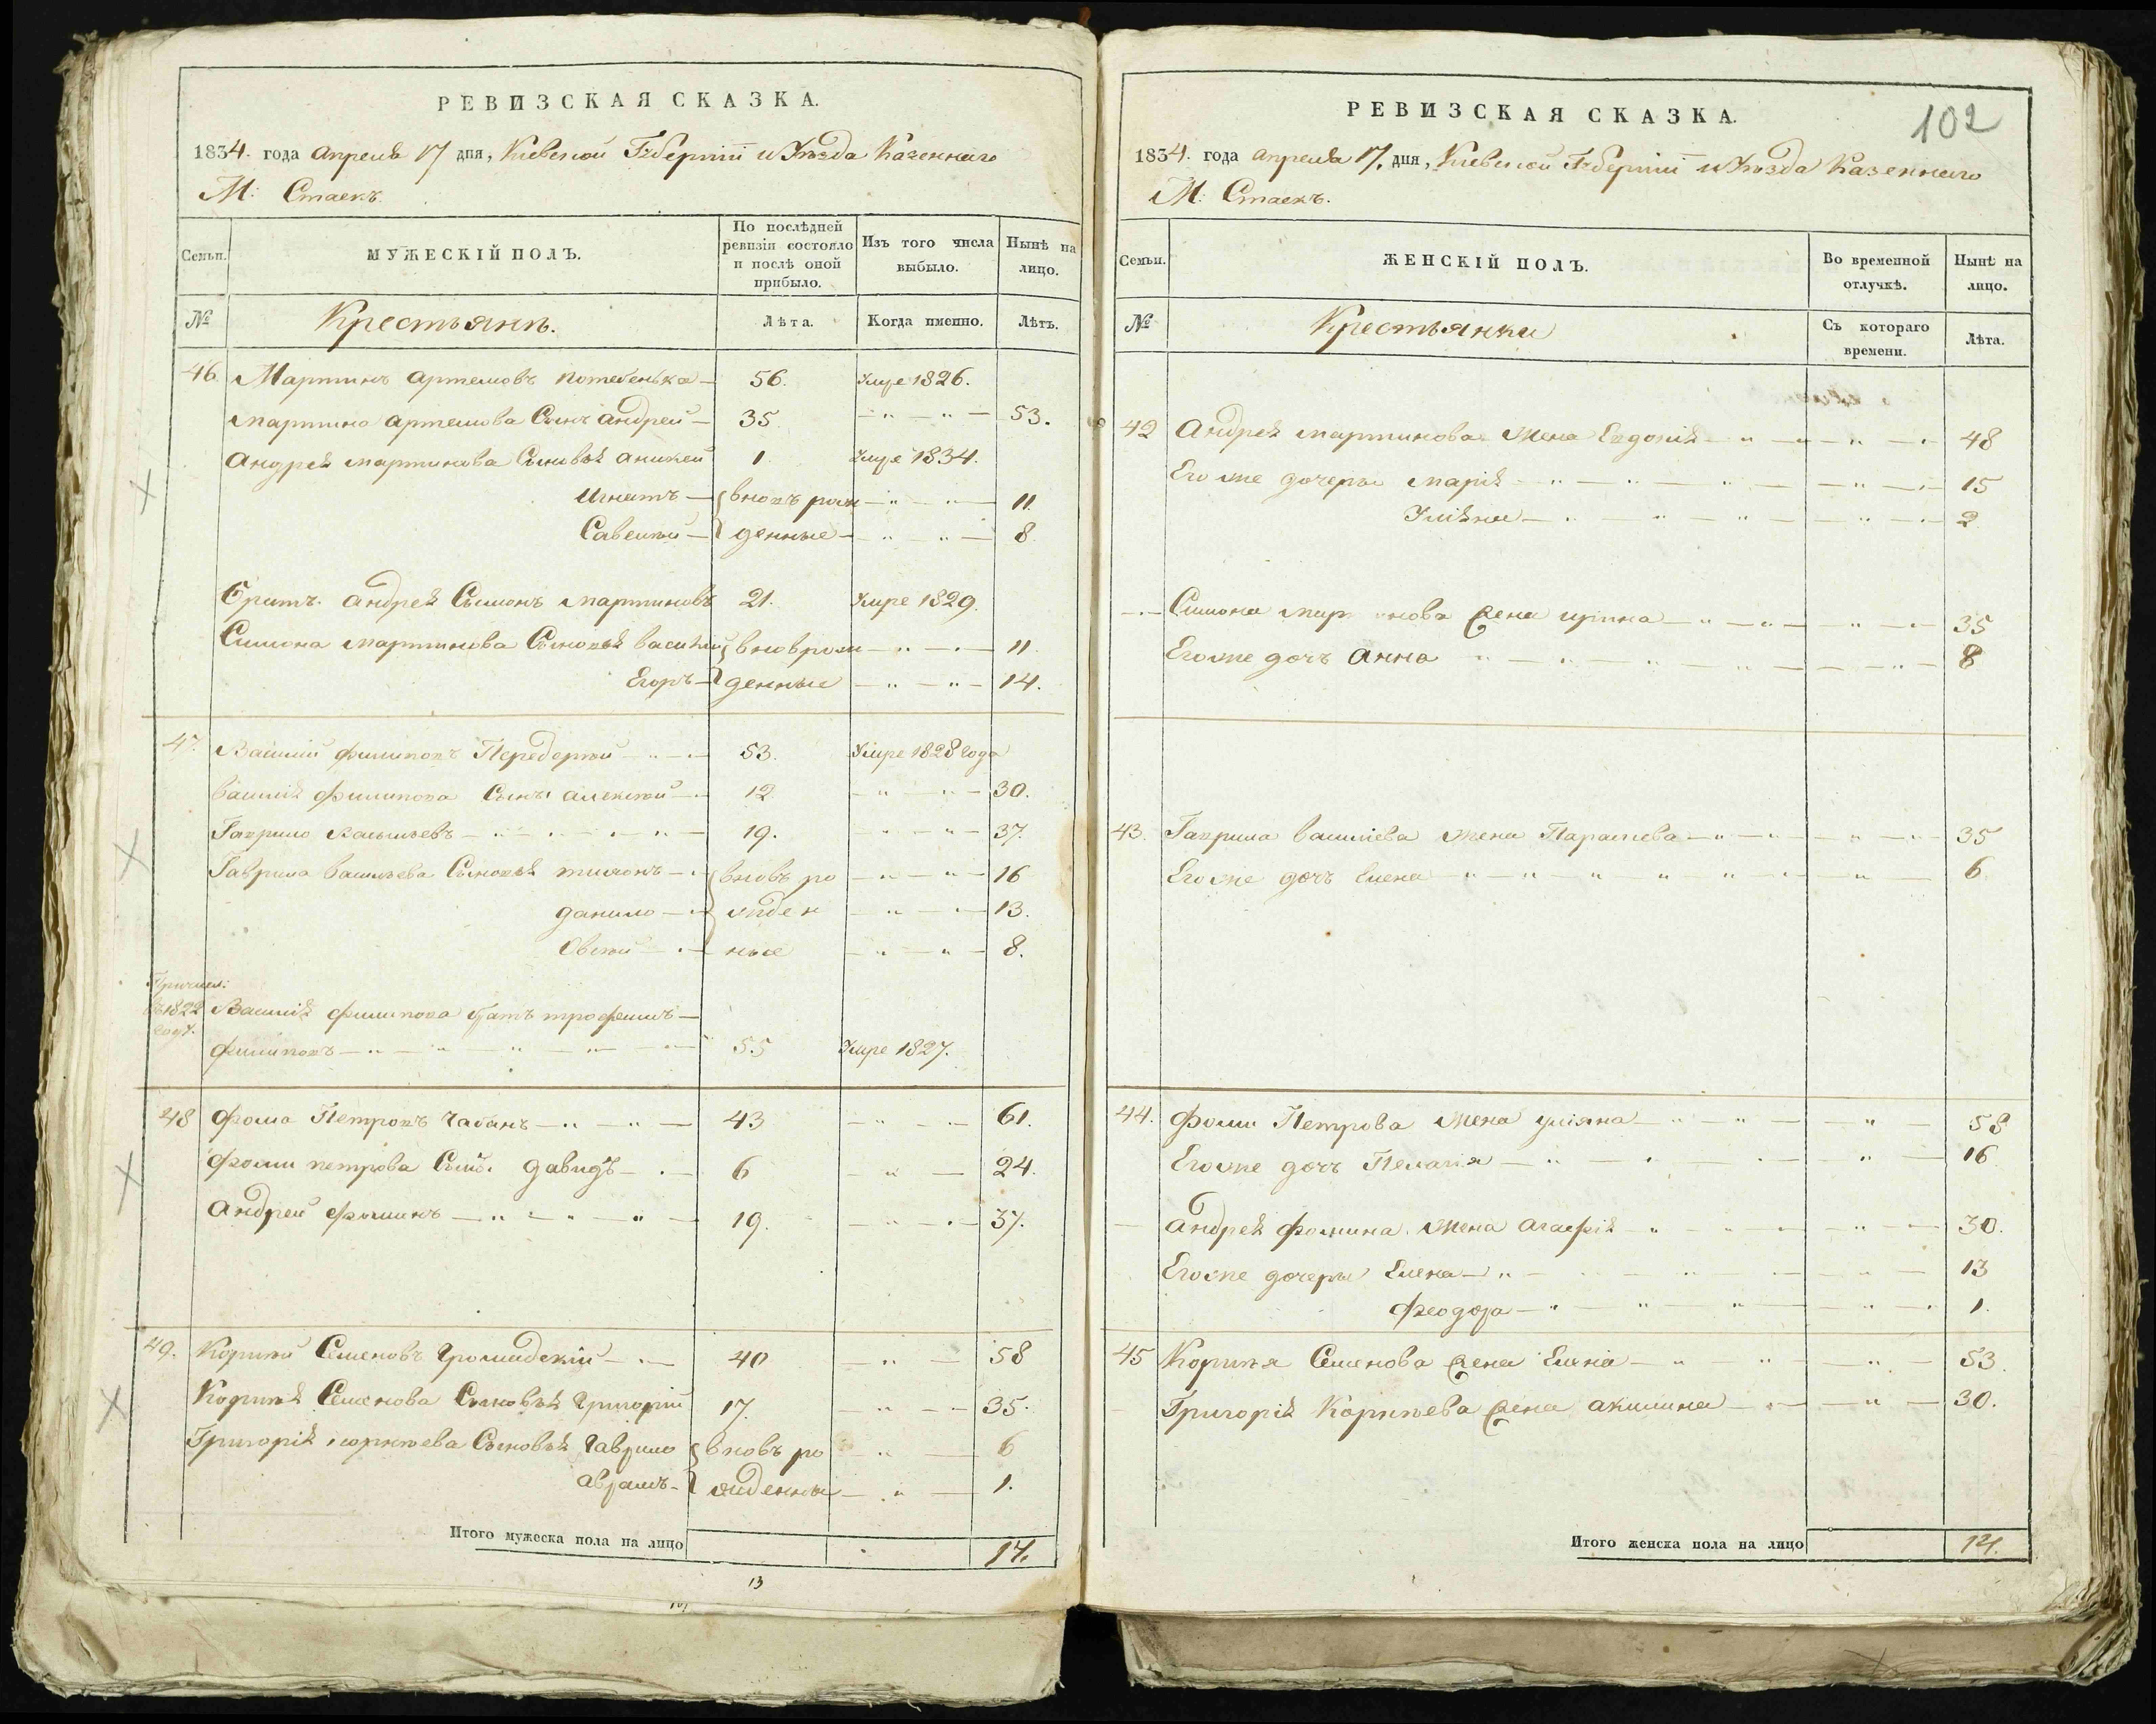 РЕВИЗСКАЯ СКАЗКА.
1834. года Апреля 17 дня, Киевской Губернiи и Уѣзда Казеннаго
М: Стаекъ.
Семьи.
МУЖЕСКIЙ ПОЛЪ.
По послѣдней ревизiи состояло и послѣ оной прибыло.
Изъ того числа выбыло.
Нынѣ на лицо.
№
Крестьянъ.
Лѣта.
Когда именно.
Лѣтъ.
46. Мартинъ Артемовъ Потебенька 56. Умре 1826.
Мартина Артемова Сынъ Андрей 35 53.
Андрея Мартинова Сыновья Аникей 1 Умре 1834.
Игнатъ вновъ рож 11.
Савелий денные 8.
Братъ Андрея Симонъ Мартиновъ 21. Умре 1829.
Симона Мартинова Сыновья Василий вновърож 11.
Егоръ денные 14.
47. Василий Филиповъ Передерий 53. Умре 1828 года
Василия Филипова Сынъ Алексий 12 30.
Гаврило Васильевъ 19. 37.
Гаврила Васильева Сыновья Тихонъ вновъ ро 16
Данило жден 13.
ные 8.
Причисл: въ 1822 году.
Василия Филипова братъ Трофимъ
Филиповъ 55 Умре 1827.
48 Фома Петровъ Чабанъ 43 61.
Фомы Петрова Сынъ Давидъ 6 24.
Андрей Фоминъ 19. 37.
49. Корнии Семеновъ Громадскiй 40 58
Корния Семенова Сыновья Григорий 17. 35.
Григорiя Корнѣева Сыновья Гаврило вновъ ро 6
Аврамъ жденные 1.
Итого мужеска пола на лицо 17.
13
РЕВИЗСКАЯ СКАЗКА.
102
1834. года Апреля 17. дня, Киевской Губернiи и Уѣзда Казеннаго
М: Стаекъ.
Семьи.
ЖЕНСКIЙ ПОЛЪ.
Во временной отлучкѣ.
Нынѣ на лицо.
№
Крестьянки
Съ котораго времени.
Лѣта.
42 Андрея Мартинова Жена Евдокiя 48
Его же дочеры Марiя 15
Улiяна 2
Симона Мар нова Жена Ирина 35
Его же дочъ Анна 8
43. Гаврила Василiева Жена Параскева 35
Его же дочъ Елена 6
44. Фомы Петрова Жена Улiяна 58
Его же дочъ Пелагiя 16
Андрея Фомина Жена Агафiя 30.
Его же дочеры Елена 13
Феодора 1.
45 Корния Семенова Жена 53.
Григорiя Корнѣева Жена Акилина 30.
Итого женска пола на лицо 14.